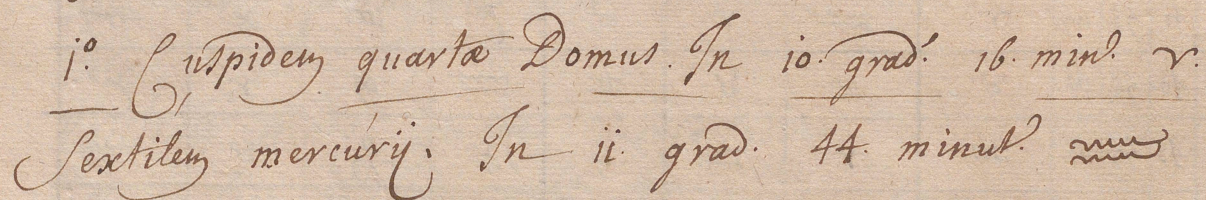 1.º Cuspidem quartæ Domus. In 10. grad. 16. min. ♈.
Sextilem mercúrij. In 11. grad. 44. minut. ♒